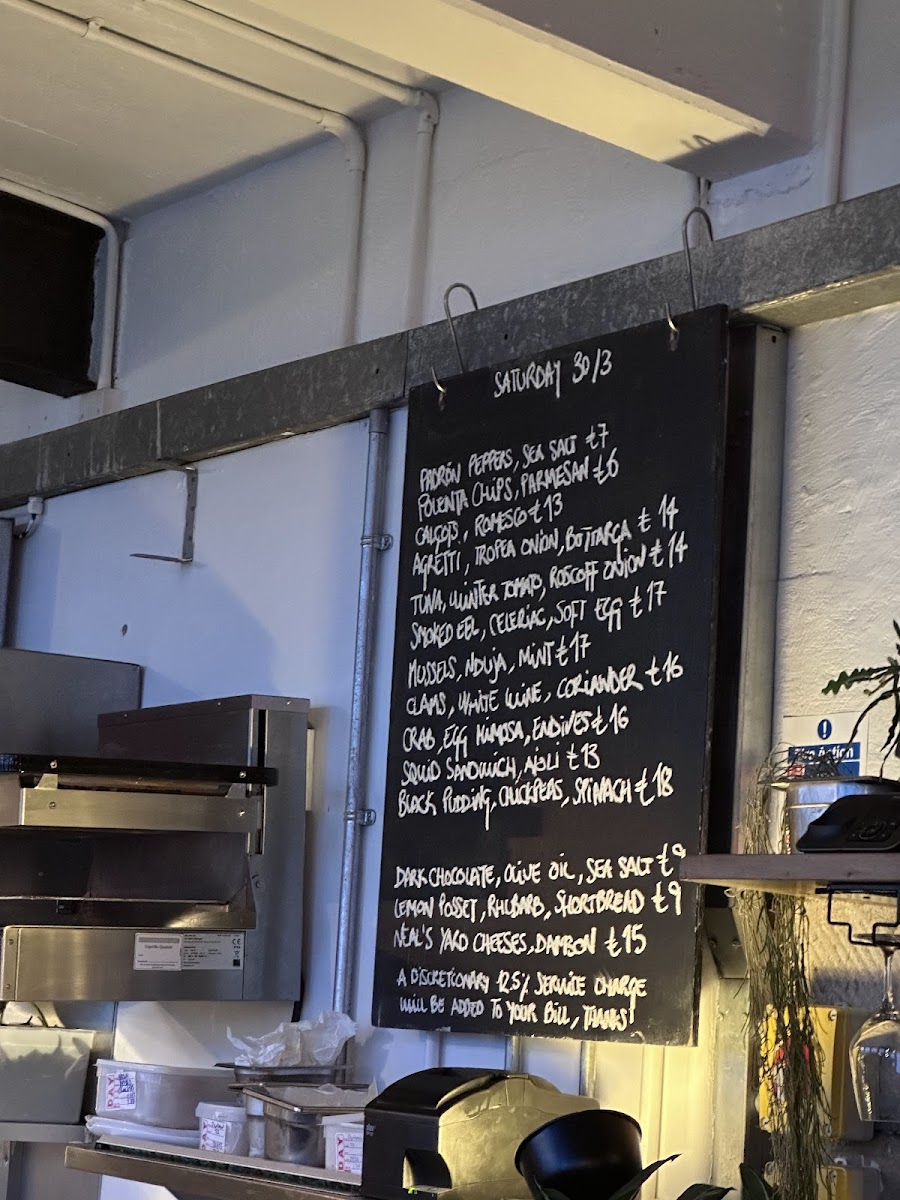 SATURDAY 30/3
PADRÓN PEPPERS, SEA SALT £7
POLENTA CHIPS, PARMESAN £6
CALÇOTS, ROMESCO £13
AGRETTI, TROPEA ONION, BOTTARGA £14
TUNA, WINTER TOMATO, ROSCOFF ONION £14
SMOKED EEL, CELERIAC, SOFT EGG £17
MUSSELS, NDUJA, MINT £17
CLAMS, WHITE WINE, CORIANDER £16
CRAB, EGG MIMOSA, ENDIVES £16
SQUID SANDWICH, AIOLI £13
BLACK PUDDING, CHICKPEAS, SPINACH £18
DARK CHOCOLATE, OLIVE OIL, SEA SALT £9
LEMON POSSET, RHUBARB, SHORTBREAD £9
NEAL'S YARD CHEESES, DAMSON £15
A DISCRETIONARY 12.5% SERVICE CHARGE
WILL BE ADDED TO YOUR BILL, THANKS!
Fire action
DAY
DAY